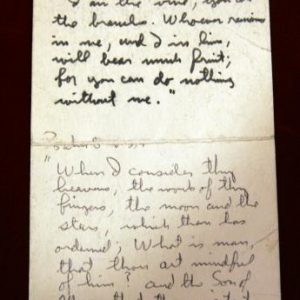 I am the vine, you are
the branches. Whoever remains
in me, and I in him,
will bear much fruit;
for you can do nothing
without me."
Psalms 8
"When I consider thy
heavens, the work of thy
fingers, the moon and the
stars, which thou has
ordained; What is man,
that thou art mindful
of him? and the Son of
Man, that thou